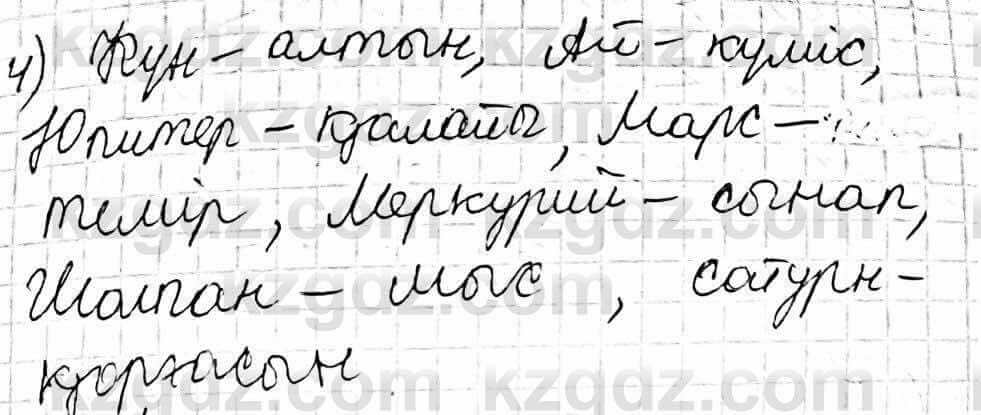 4) Күн - алтын, Ай - күміс,
Юпитер - қалайы, Марс -
темір, Меркурий - сынап,
Шолпан - мыс, сатурн -
қорғасын